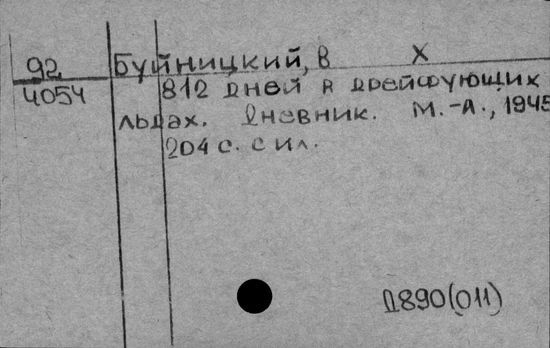 92 Буйницкий, В Х
4054 812 дней в дрейфующих
льдах. Дневник. М.-Л., 1945
204 с. с ил.
Д890(011)